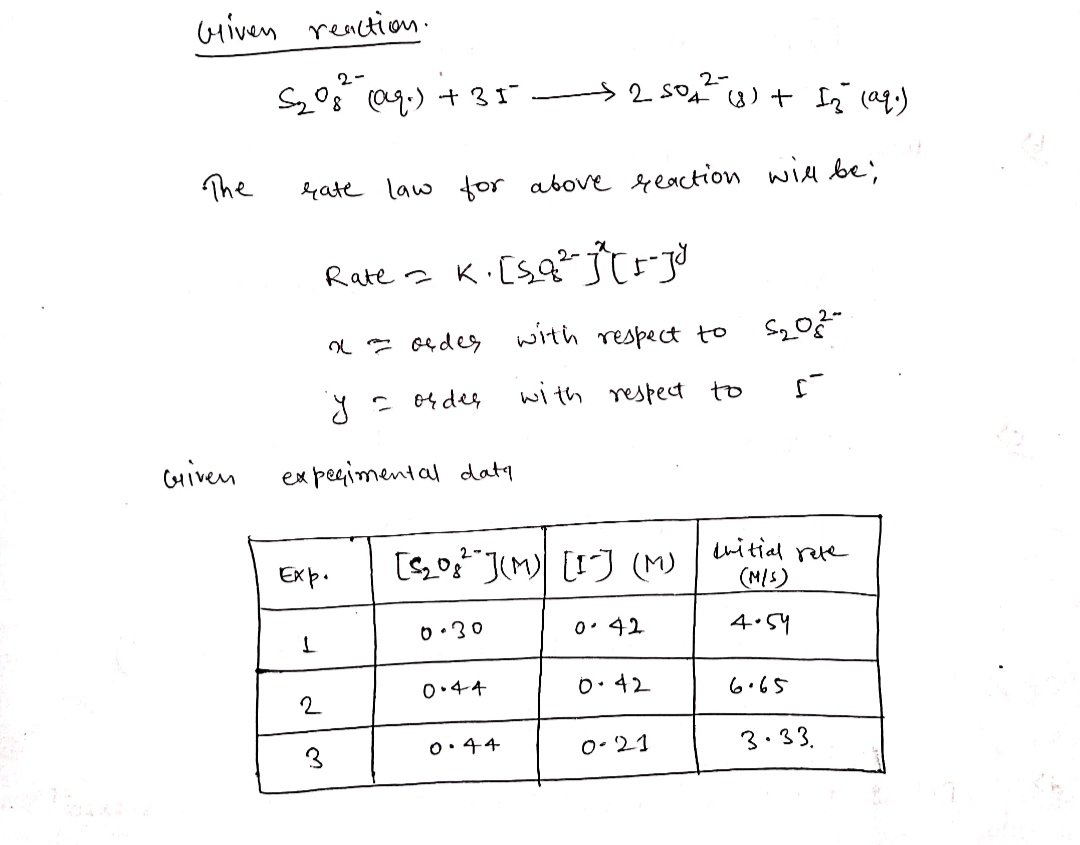 Given reaction.
S₂O₈²⁻ (aq.) + 3 I⁻ ⟶ 2 SO₄²⁻ (g) + I₃⁻ (aq.)
The rate law for above reaction will be;
Rate = K. [S₂O₈²⁻]ˣ [I⁻]ʸ
x = order with respect to S₂O₈²⁻
y = order with respect to I⁻
Given experimental data
Exp. [S₂O₈²⁻](M) [I⁻] (M) Initial rate (M/s)
1 0.30 0.42 4.54
2 0.44 0.42 6.65
3 0.44 0.21 3.33.